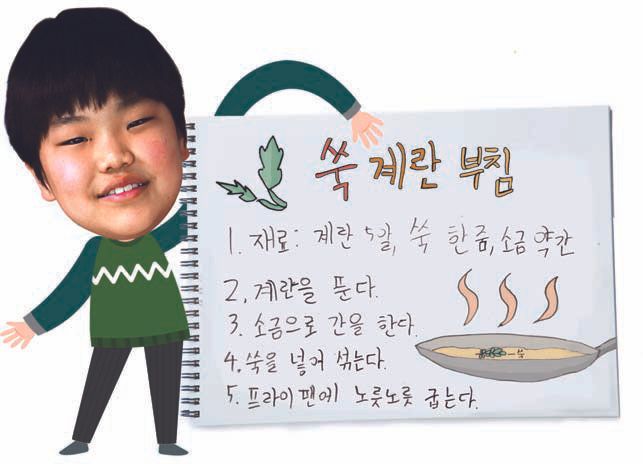 쑥 계란 부침
1. 재료: 계란 5알, 쑥 한 줌, 소금 약간
2. 계란을 푼다.
3. 소금으로 간을 한다.
4. 쑥을 넣어 섞는다.
5. 프라이팬에 노릇노릇 굽는다.
쑥